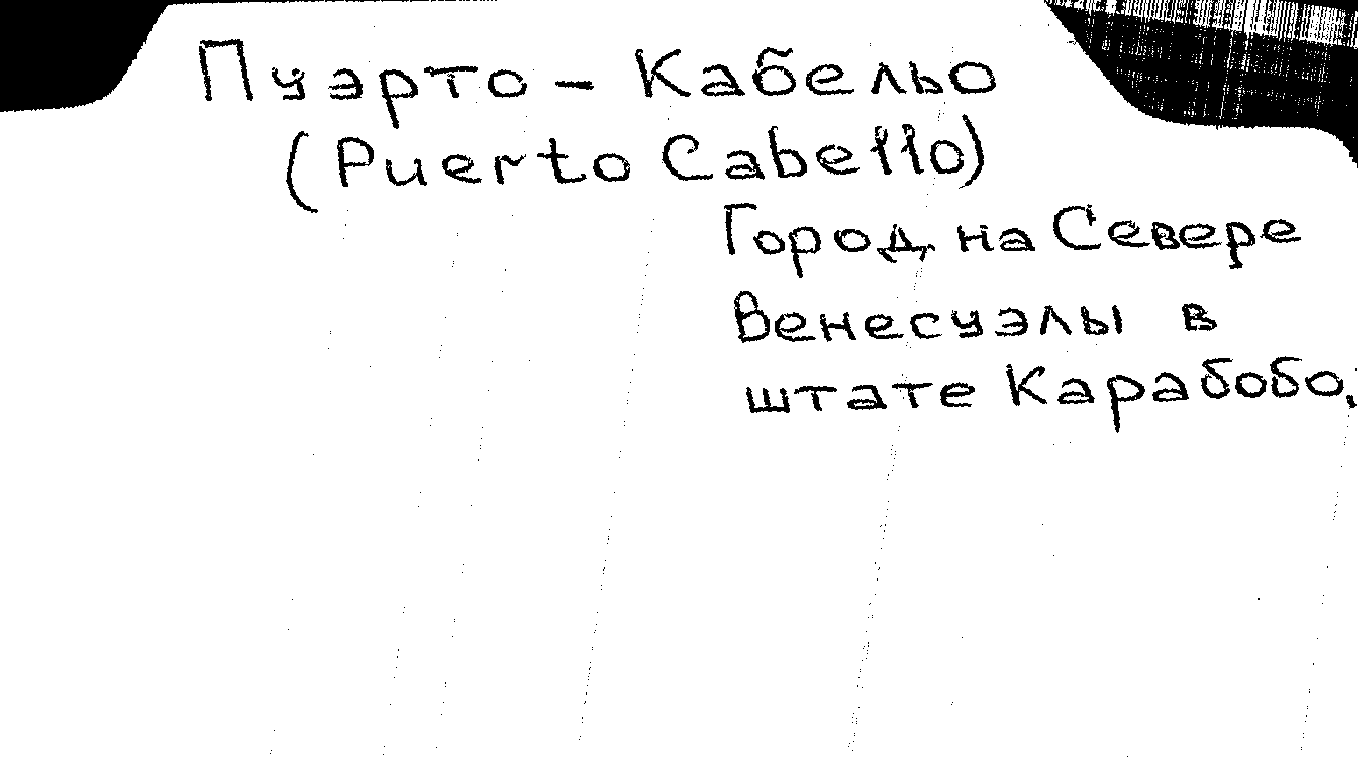 Пуэрто - Кабельо
(Puerto Cabello)
Город на Севере
Венесуэлы в
штате Карабобо,